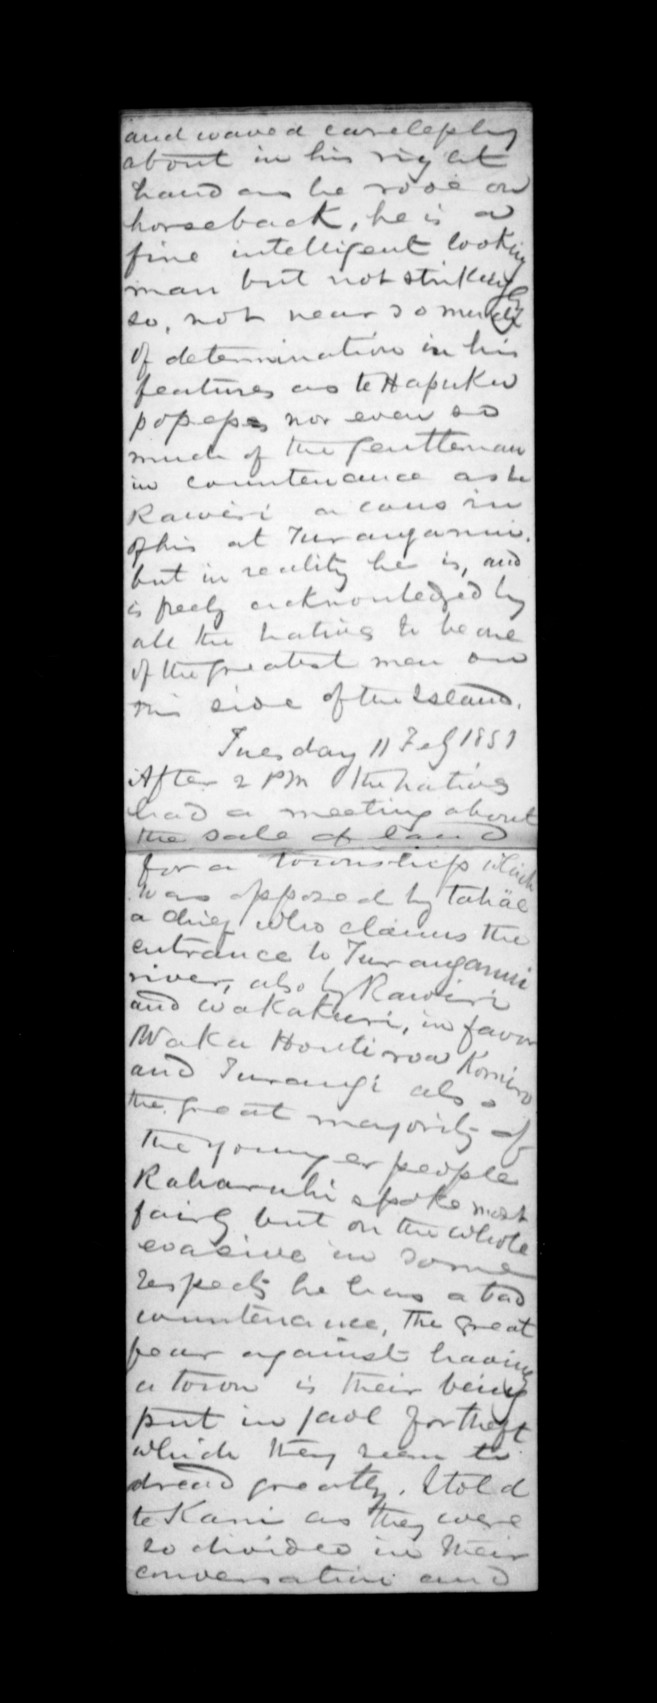 and waved carelessly
about in his right
hand as he rode on
horseback, he is a
fine intelligent looking
man but not strikingly
so, not near so much
of determination in his
features as te Hapuku
popepe nor even so
much of the gentleman
in countenance as te
Rawiri a cousin
of his at Turanganui.
but in reality he is, and
is freely acknowledged by
all the natives to be one
of the greatest men on
this side of the Island.
Tuesday 11 Feb 1851
After 2 PM the natives
had a meeting about
the sale of land
for a township which
was opposed by tahae
a chief who claims the
entrance to Turanganui
river, also by Rawiri
and Wakakuri, in favor
Waka
and Turangi also
the great majority of
the younger people
Raharuhi spoke most
fairly but on the whole
evasive in some
respects he has a bad
countenance, The great
fear against having
a town is their being
put in jaol for theft
which they seem to
dread greatly. I told
te Kani as they were
so divided in their
conversation and